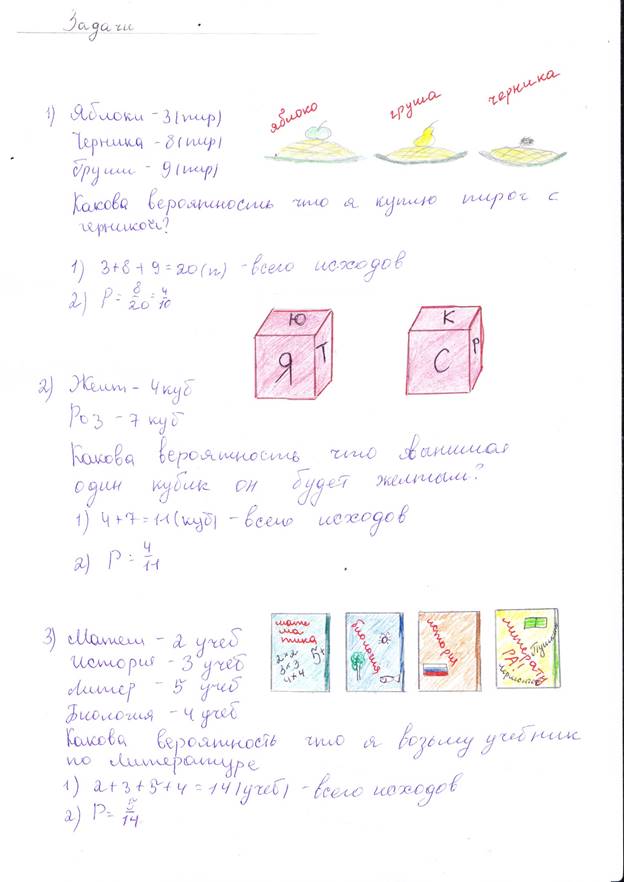 Задачи
1) Яблоки - 3 (пир)
Черника - 8 (пир)
Груши - 9 (пир)
яблоко
груша
черника
Какова вероятность что я куплю пирог с
черникой?
1) 3+8+9=20(п) - всего исходов
2) P = 8/20 = 4/10
Ю
Я Т
К
С Р
2) Желт - 4 куб
Роз - 7 куб
Какова вероятность что вынимая
один кубик он будет желтым?
1) 4+7=11(куб) - всего исходов
2) P = 4/11
3) Матем - 2 учеб
История - 3 учеб
Литер - 5 учеб
Биология - 4 учеб
мате
ма
тика
2×2
3×3
4×4
5+
биология
история
литерату
РА!
Пушкин
Лермонтов
Какова вероятность что я возьму учебник
по литературе
1) 2+3+5+4=14(учеб) - всего исходов
2) P = 5/14